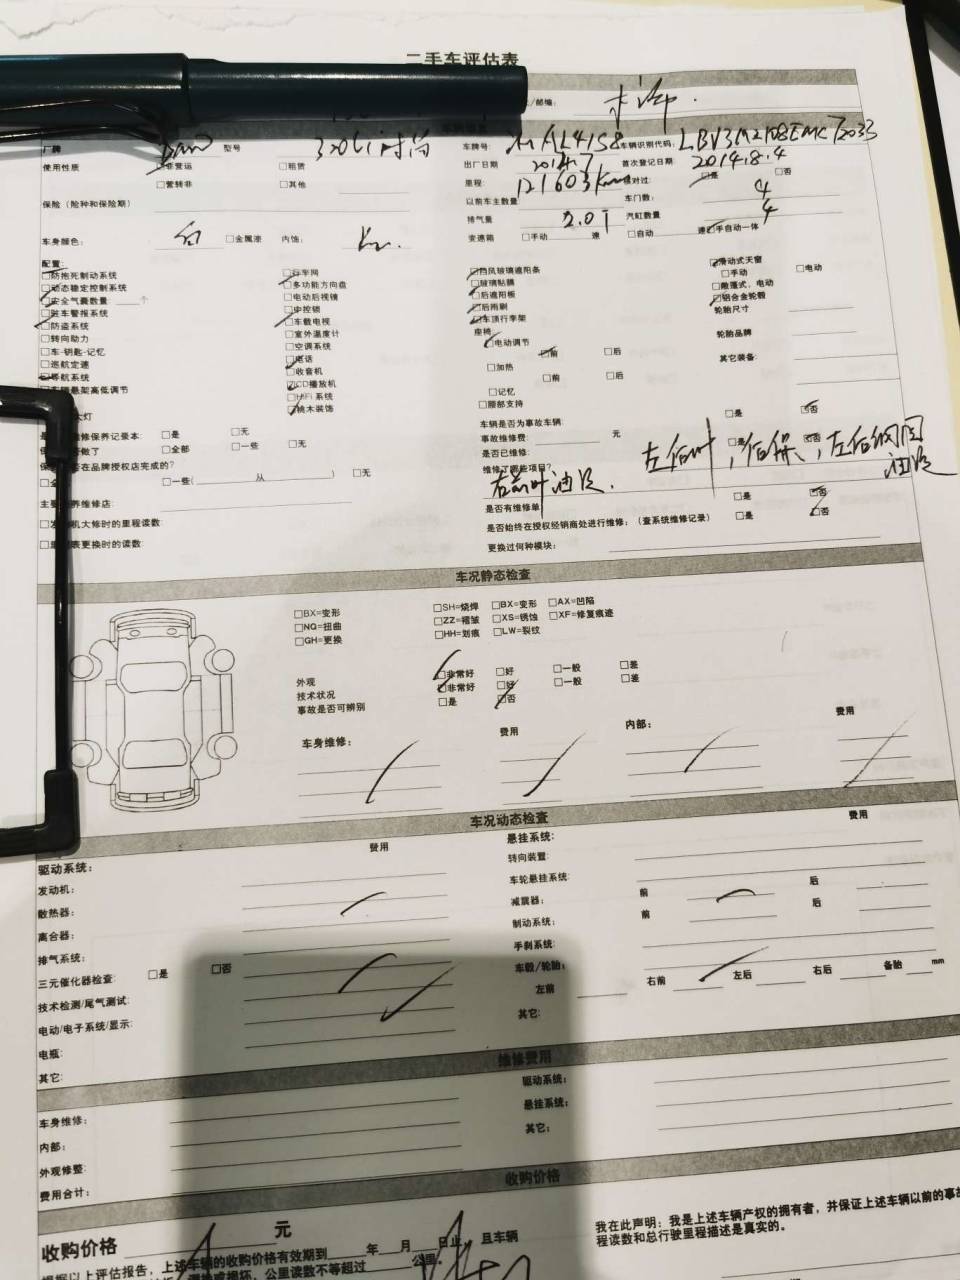 二手车评估表
/邮编:
厂牌 型号 320Li时尚 车牌号: AL41S8 车辆识别代码:
使用性质 □非营运 □租赁 出厂日期 2014.7 首次登记日期: 2014.8.4
□营转非 □其他 里程: 121603Km 核对过: □是 □否
保险（险种和保险期） 以前车主数量 车门数: 4
排气量 2.0T 汽缸数量 4
车身颜色: 白 □金属漆 内饰: 变速箱 □手动 速 □自动 速□手自动一体
配置: □行车网 □挡风玻璃遮阳条 □滑动式天窗
□防抱死制动系统 □多功能方向盘 □玻璃贴膜 □手动 □电动
□动态稳定控制系统 □电动后视镜 □后遮阳板 □敞篷式、电动
□安全气囊数量: ___个 □中控锁 □后雨刷 □铝合金轮毂
□驻车警报系统 □车载电视 □车顶行李架 轮胎尺寸
□防盗系统 □室外温度计 座椅:
□转向助力 □空调系统 □电动调节 轮胎品牌
□车-钥匙-记忆 □电话 □前 □后
□巡航定速 □收音机 □加热 其它装备:
□导航系统 □CD播放机 □前 □后
悬架高低调节 □HIFI系统 □记忆
大灯 □桃木装饰 □腰部支持
修保养记录本: □是 □无 车辆是否为事故车辆: □是 □否
做了 □全部 □一些 □无 事故维修费: 元
在品牌授权店完成的? 是否已维修: □是 □否
□一些( 从 ) □无 维修了哪些项目? 左后叶
油漆
右前叶油漆.
养维修店: 是否有维修单 □是 □否
机大修时的里程读数: 是否始终在授权经销商处进行维修:（查系统维修记录） □是 □否
表更换时的读数: 更换过何种模块:
车况静态检查
□BX=变形 □SH=烧焊 □BX=变形 □AX=凹陷
□NQ=扭曲 □ZZ=褶皱 □XS=锈蚀 □XF=修复痕迹
□GH=更换 □HH=划痕 □LW=裂纹
外观 □非常好 □好 □一般 □差
技术状况 □非常好 □好 □一般 □差
事故是否可辨别 □是 □否
车身维修: 费用 内部: 费用
车况动态检查
驱动系统: 费用 悬挂系统: 费用
发动机: 转向装置:
散热器: 车轮悬挂系统: 前 后
离合器: 减震器: 前 后
排气系统: 制动系统:
三元催化器检查: □是 □否 手刹系统:
技术检测/尾气测试: 车毂/轮胎: 右前 左后 右后 备胎 mm
电动/电子系统/显示: 左前
电瓶: 其它:
其它:
维修费用
车身维修: 驱动系统:
内部: 悬挂系统:
外观修整: 其它:
费用合计:
收购价格
收购价格 元 我在此声明：我是上述车辆产权的拥有者，并保证上述车辆以前的事故
根据以上评估报告，上述车辆的收购价格有效期到___年__月__日止，且车辆 程读数和总行驶里程描述是真实的。
损坏，公里读数不等超过 公里。